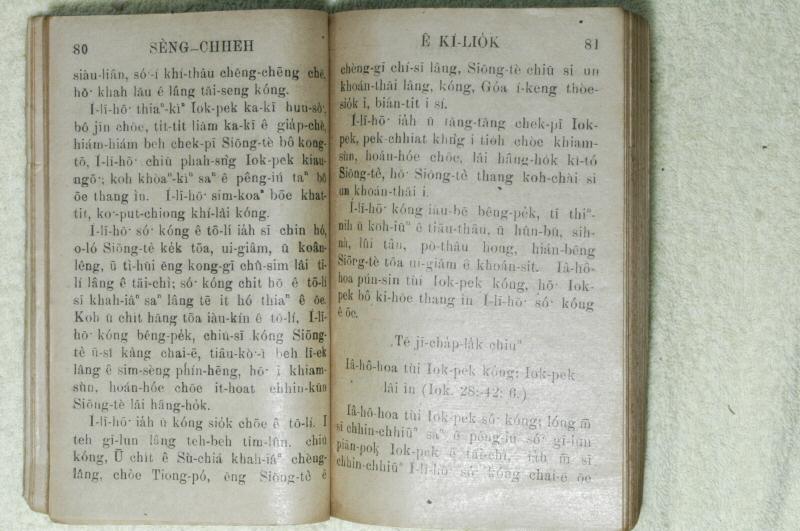 80 SÈNG-CHHEH
siàu-liân, só͘-í khí-thâu chēng-chēng chē,
hō͘ khah lāu ê lâng tāi-seng kóng.
Í-lī-hō͘ thiaⁿ-kìⁿ Iok-pek ka-kī hun-sò͘,
bô jīn chōe, tit-tit liām ka-kī ê giáp-chè,
hiám-hiám beh chek-pī Siōng-tè bô kong-
tō, Í-lī-hō͘ chiū phah-sǹg Iok-pek kiau-
ngō͘; koh khòaⁿ-kìⁿ saⁿ ê pêng-iú taⁿ bô
ōe thang ìn. Í-lī-hō͘ sim-koaⁿ bōe khat-
tit, ko͘-put-chiong khí-lâi kóng.
Í-lī-hō͘ só͘ kóng ê tō-lí iáh sī chin hó,
o-ló Siōng-tè kék tōa, ui-giâm, ū koân-
lêng, ū tì-hūi ēng kong-gī chû-sim lâi tī-
lí lâng ê tāi-chì; só͘ kóng chit hō ê tō-lí
sī khah-iâⁿ saⁿ lâng tē it hó thiaⁿ ê ōe.
Koh ū chit hāng tōa iàu-kín ê tō-lí, Í-lī-
hō͘ kóng bêng-pék, chiū-sī kóng Siōng-
tè ū-sī kàng chai-ē, tiâu-kò͘-ì beh lī-ek
lâng ê sim-sèng phín-hēng, hō͘ i khiam-
sùn, hoán-hóe chōe it-hoat chhin-kūn
Siōng-tè lâi hâng-hók.
Í-lī-hō͘ iáh ū kóng siók chōe ê tō-lí. I
teh gī-lūn lâng teh-beh tîm-lûn, chiū
kóng, Ū chit ê Sù-chiá khah-iâⁿ chèng-
lâng, chòe Tiong-pó, ēng Siōng-tè ê
Ê KÍ-LIÓK 81
chèng-gī chí-sī lâng, Siōng-tè chiū sì un
khoán-thāi lâng, kóng, Góa í-keng thòe-
siók i, bián-tit i sí.
Í-lī-hō͘ iáh ū tāng-tāng chek-pī Iok-
pek, pek-chhiat khǹg i tióh chòe khiam-
sùn, hoán-hóe chōe, lâi hâng-hók kî-tó
Siōng-tè, hō͘ Siōng-tè thang koh-chài sì
un khoán-thāi i.
Í-lī-hō͘ kóng iáu-bē bêng-pék, tī thiⁿ-
nih ū koh-iūⁿ ê tiāu-thâu, ū hûn-bū, sih-
nà, lûi tân, pò-thâu hong, hián-bêng
Siōng-tè tōa ui-giâm ê khoán-sit. Iâ-hô-
hoa pún-sin tùi Iok-pek kóng, hō͘ Iok-
pek bô ki-hōe thang ìn Í-lī-hō͘ só͘ kóng
ê ōe.
Tē jī-cháp-lák chiuⁿ
Iâ-hô-hoa tùi Iok-pek kóng; Iok-pek
lâi ìn (Iok. 28:-42: 6.)
Iâ-hô-hoa tùi Iok-pek só͘ kóng; lóng m̄
sī chhin-chhiūⁿ saⁿ ê pêng-iú só͘ gī-lūn
piān-pok Iok-pek ê tāi-chì, iáh m̄ sī
chhin-chhiūⁿ Í-lī-hō͘ só͘ kóng chai-ē ōe